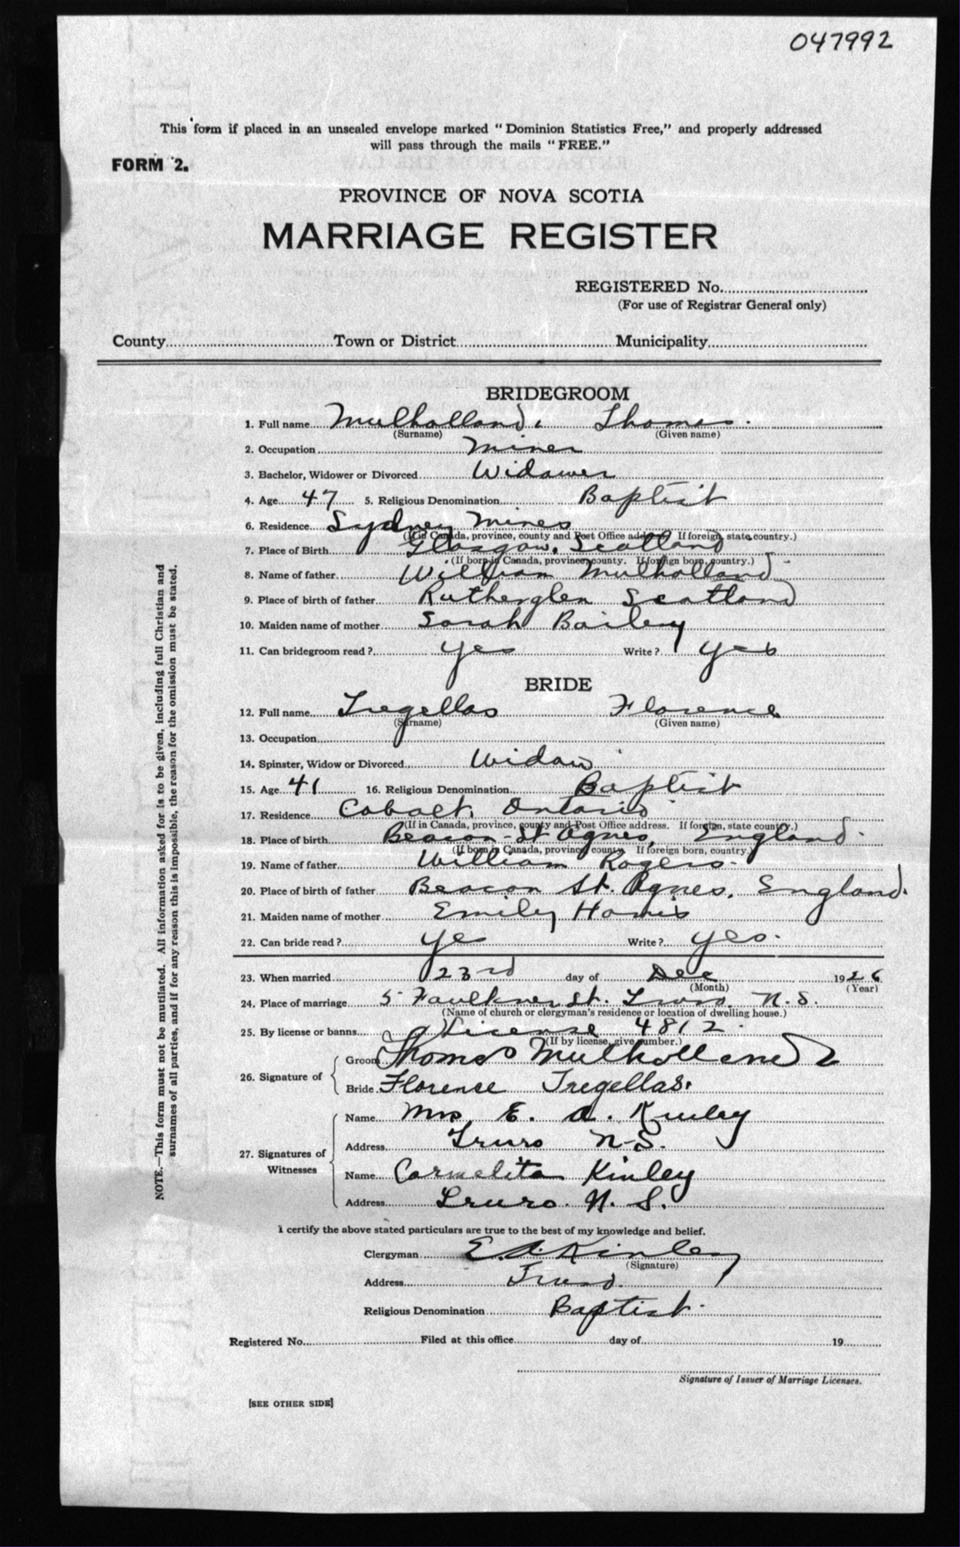 047992
This form if placed in an unsealed envelope marked "Dominion Statistics Free," and properly addressed
will pass through the mails "FREE."
FORM 2.
PROVINCE OF NOVA SCOTIA
MARRIAGE REGISTER
REGISTERED No.
(For use of Registrar General only)
County Town or District Municipality
BRIDEGROOM
1. Full name Mulholland, Thomas.
(Surname) (Given name)
2. Occupation Miner
3. Bachelor, Widower or Divorced Widower
4. Age 47 5. Religious Denomination Baptist
6. Residence Sydney Mines
(If in Canada, province, county and Post Office address If foreign, state country.)
7. Place of Birth Glasgow, Scotland
(If born in Canada, province, county. If foreign born, country.)
8. Name of father William Mulholland
9. Place of birth of father Rutherglen Scotland
10. Maiden name of mother Sarah Bailey
11. Can bridegroom read? yes Write? yes
BRIDE
12. Full name Tregellas Florence
(Surname) (Given name)
13. Occupation
14. Spinster, Widow or Divorced Widow
15. Age 41 16. Religious Denomination Baptist
17. Residence Cobalt, Ontario
(If in Canada, province, county and Post Office address. If foreign, state country.)
18. Place of birth Beacon St Agnes, England.
(If born in Canada, province, county If foreign born, country.)
19. Name of father William Rogers.
20. Place of birth of father Beacon St. Agnes, England.
21. Maiden name of mother Emily Harris
22. Can bride read? yes Write? yes.
23. When married 23rd day of Dec 1926
(Month) (Year)
24. Place of marriage 5 Faulkner St. Truro N.S.
(Name of church or clergyman's residence or location of dwelling house.)
25. By license or banns License 4812.
(If by license, give number.)
26. Signature of
Groom Thomas Mulholland
Bride Florence Tregellas.
27. Signatures of Witnesses
Name Mrs E. A. Kinley
Address Truro N.S.
Name Carmelita Kinley
Address Truro. N. S.
I certify the above stated particulars are true to the best of my knowledge and belief.
Clergyman E. A. Kinley
(Signature)
Address Truro.
Religious Denomination Baptist.
Registered No. Filed at this office day of 19
Signature of Issuer of Marriage Licenses.
[SEE OTHER SIDE]
NOTE.—This form must not be mutilated. All information asked for is to be given, including full Christian and
surnames of all parties, and if for any reason this is impossible, the reason for the omission must be stated.